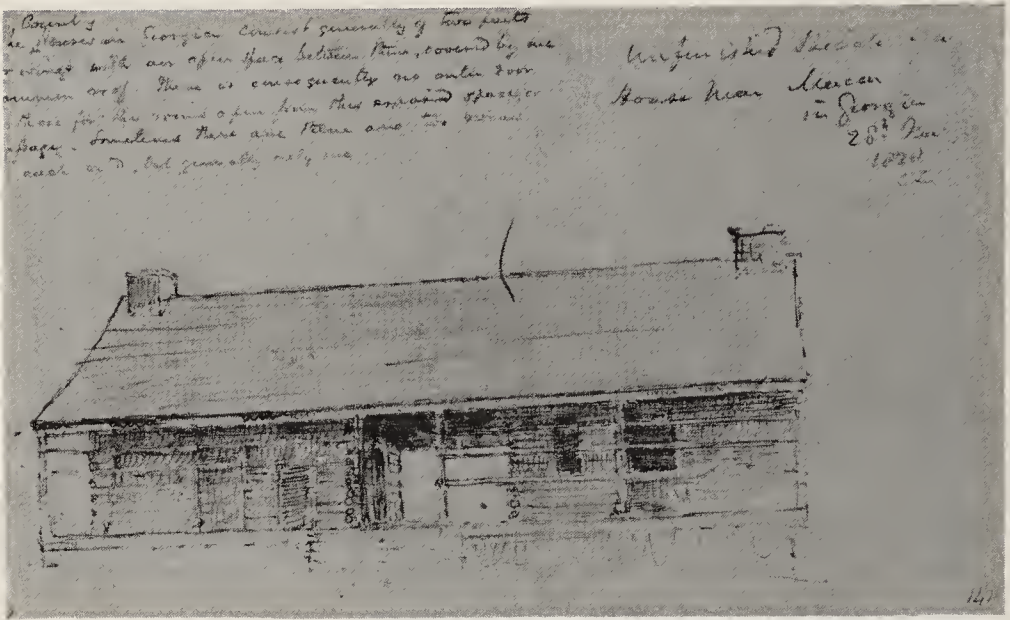 Country
The houses in Georgia consist generally of two parts
or wings with an open space between them, covered by one
common roof. There is consequently no outer door
those for the rooms open from this space or
passage. Sometimes there are three and
each end, but generally only one
Unfinished Sketch
House Near Macon
in Georgia
28th
1828